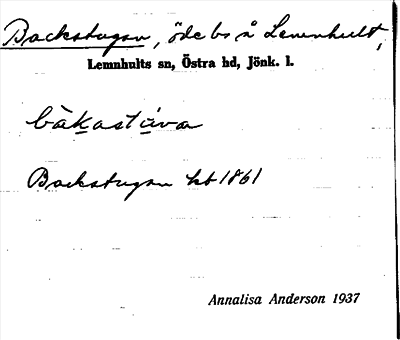 Backstugan, öde bs å Lemnhult,
Lemnhults sn, Östra hd, Jönk. l.
bàkastúva
Backstugan hb 1861
Annalisa Anderson 1937